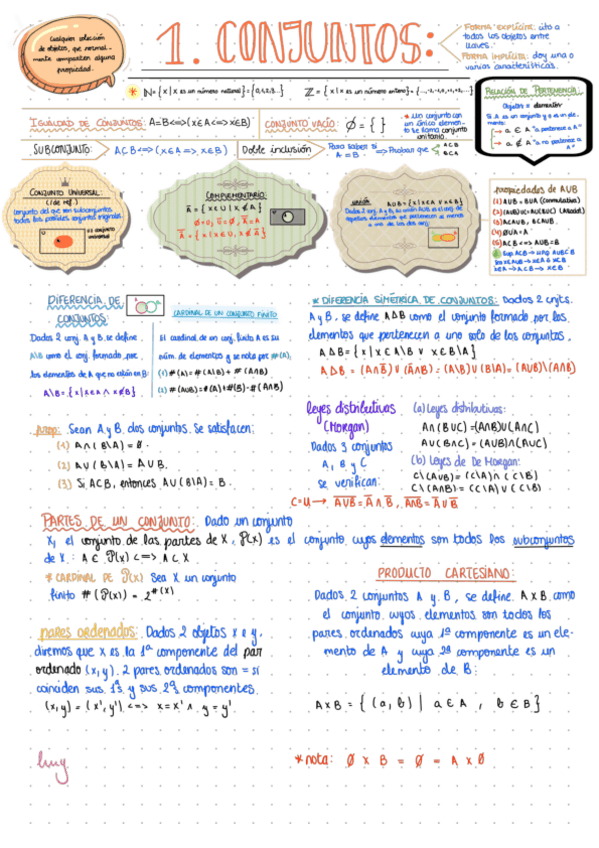 Cualquier colección
de objetos, que normal-
mente comparten alguna
propiedad.
1. CONJUNTOS:
FORMA EXPLÍCITA: cito a
todos los objetos entre
llaves.
FORMA IMPLÍCITA: doy una o
varias características.
* N = {x | x es un número natural} = {0,1,2,3...}
Z = {x | x es un número entero} = {...,-2,-1,0,+1,+2,...}
RELACIÓN DE PERTENENCIA:
Objetos = elementos
Si A es un conjunto y a es un ele-
mento:
→ a ∈ A "a pertenece a A"
→ a ∉ A "a no pertenece a A"
IGUALDAD DE CONJUNTOS: A=B<=>(x∈A<=>x∈B)
CONJUNTO VACÍO: Ø = { }
* Un conjunto con
un único elemen-
to se llama conjunto
unitario.
SUBCONJUNTO: A⊂B<=>(x∈A => x∈B)
Doble inclusión
Para saber si
A = B
=> Probar que
A⊂B
B⊂A
CONJUNTO UNIVERSAL:
(U de ref.)
Conjunto del que son subconjuntos
todos los posibles conjuntos originales.
El conjunto
universal
COMPLEMENTARIO
Ā = {x∈U | x∉A}
UNIÓN
A∪B = {x | x∈A ∨ x∈B}
Propiedades de A∪B
(1) A∪B = B∪A (conmutativa)
(3) A⊂A∪B, B⊂A∪B.
(4) Ø∪A = A
(5) A⊂B <=> A∪B=B
DIFERENCIA DE
CONJUNTOS:
Dados 2 conj. A y B, se define
A\B como el conj. formado por
los elementos de A que no están en B:
A\B = {x | x∈A ∧ x∉B}
CARDINAL DE UN CONJUNTO FINITO
El cardinal de un conj. finito A es su
núm. de elementos y se nota por #(A):
(1) #(A) = #(A\B) + #(A∩B)
(2) #(A∪B) = #(A)+#(B)-#(A∩B)
* DIFERENCIA SIMÉTRICA DE CONJUNTOS: Dados 2 cnjts.
A y B, se define A∆B como el conjunto formado por los
elementos que pertenecen a uno solo de los conjuntos.
A∆B = {x | x∈A\B ∨ x∈B\A}
A∆B = (A∩B̄) ∪ (Ā∩B) = (A\B)∪(B\A) = (A∪B)\(A∩B)
Prop: Sean A y B, dos conjuntos. Se satisfacen:
(1) A∩(B\A) = Ø.
(2) A∪(B\A) = A∪B.
(3) Si A⊂B, entonces A∪(B\A) = B.
Leyes distributivas
(Morgan)
Dados 3 conjuntos
A, B y C
se verifican:
(a) Leyes distributivas:
A∩(B∪C) = (A∩B)∪(A∩C)
A∪(B∩C) = (A∪B)∩(A∪C)
(b) Leyes de De Morgan:
C\(A∪B) = (C\A)∩(C\B)
C\(A∩B) = (C\A)∪(C\B)
PARTES DE UN CONJUNTO: Dado un conjunto
X, el conjunto de las partes de X, P(x) es el conjunto cuyos elementos son todos los subconjuntos
de X: A ∈ P(x) <=> A⊂X
* CARDINAL DE P(x) Sea X un conjunto
finito #(P(x)) = 2^#(X)
PRODUCTO CARTESIANO:
Dados 2 conjuntos A y B, se define A×B como
el conjunto cuyos elementos son todos los
pares ordenados cuya 1ª componente es un ele-
mento de A y cuya 2ª componente es un
elemento de B:
A×B = {(a,b) | a∈A, b∈B}
pares ordenados: Dados 2 objetos x e y,
diremos que x es la 1ª componente del par
ordenado (x,y). 2 pares ordenados son = si
coinciden sus 1ªs y sus 2ªs componentes.
(x,y) = (x',y') <=> x=x' ∧ y=y'
* nota: Ø × B = Ø = A × Ø